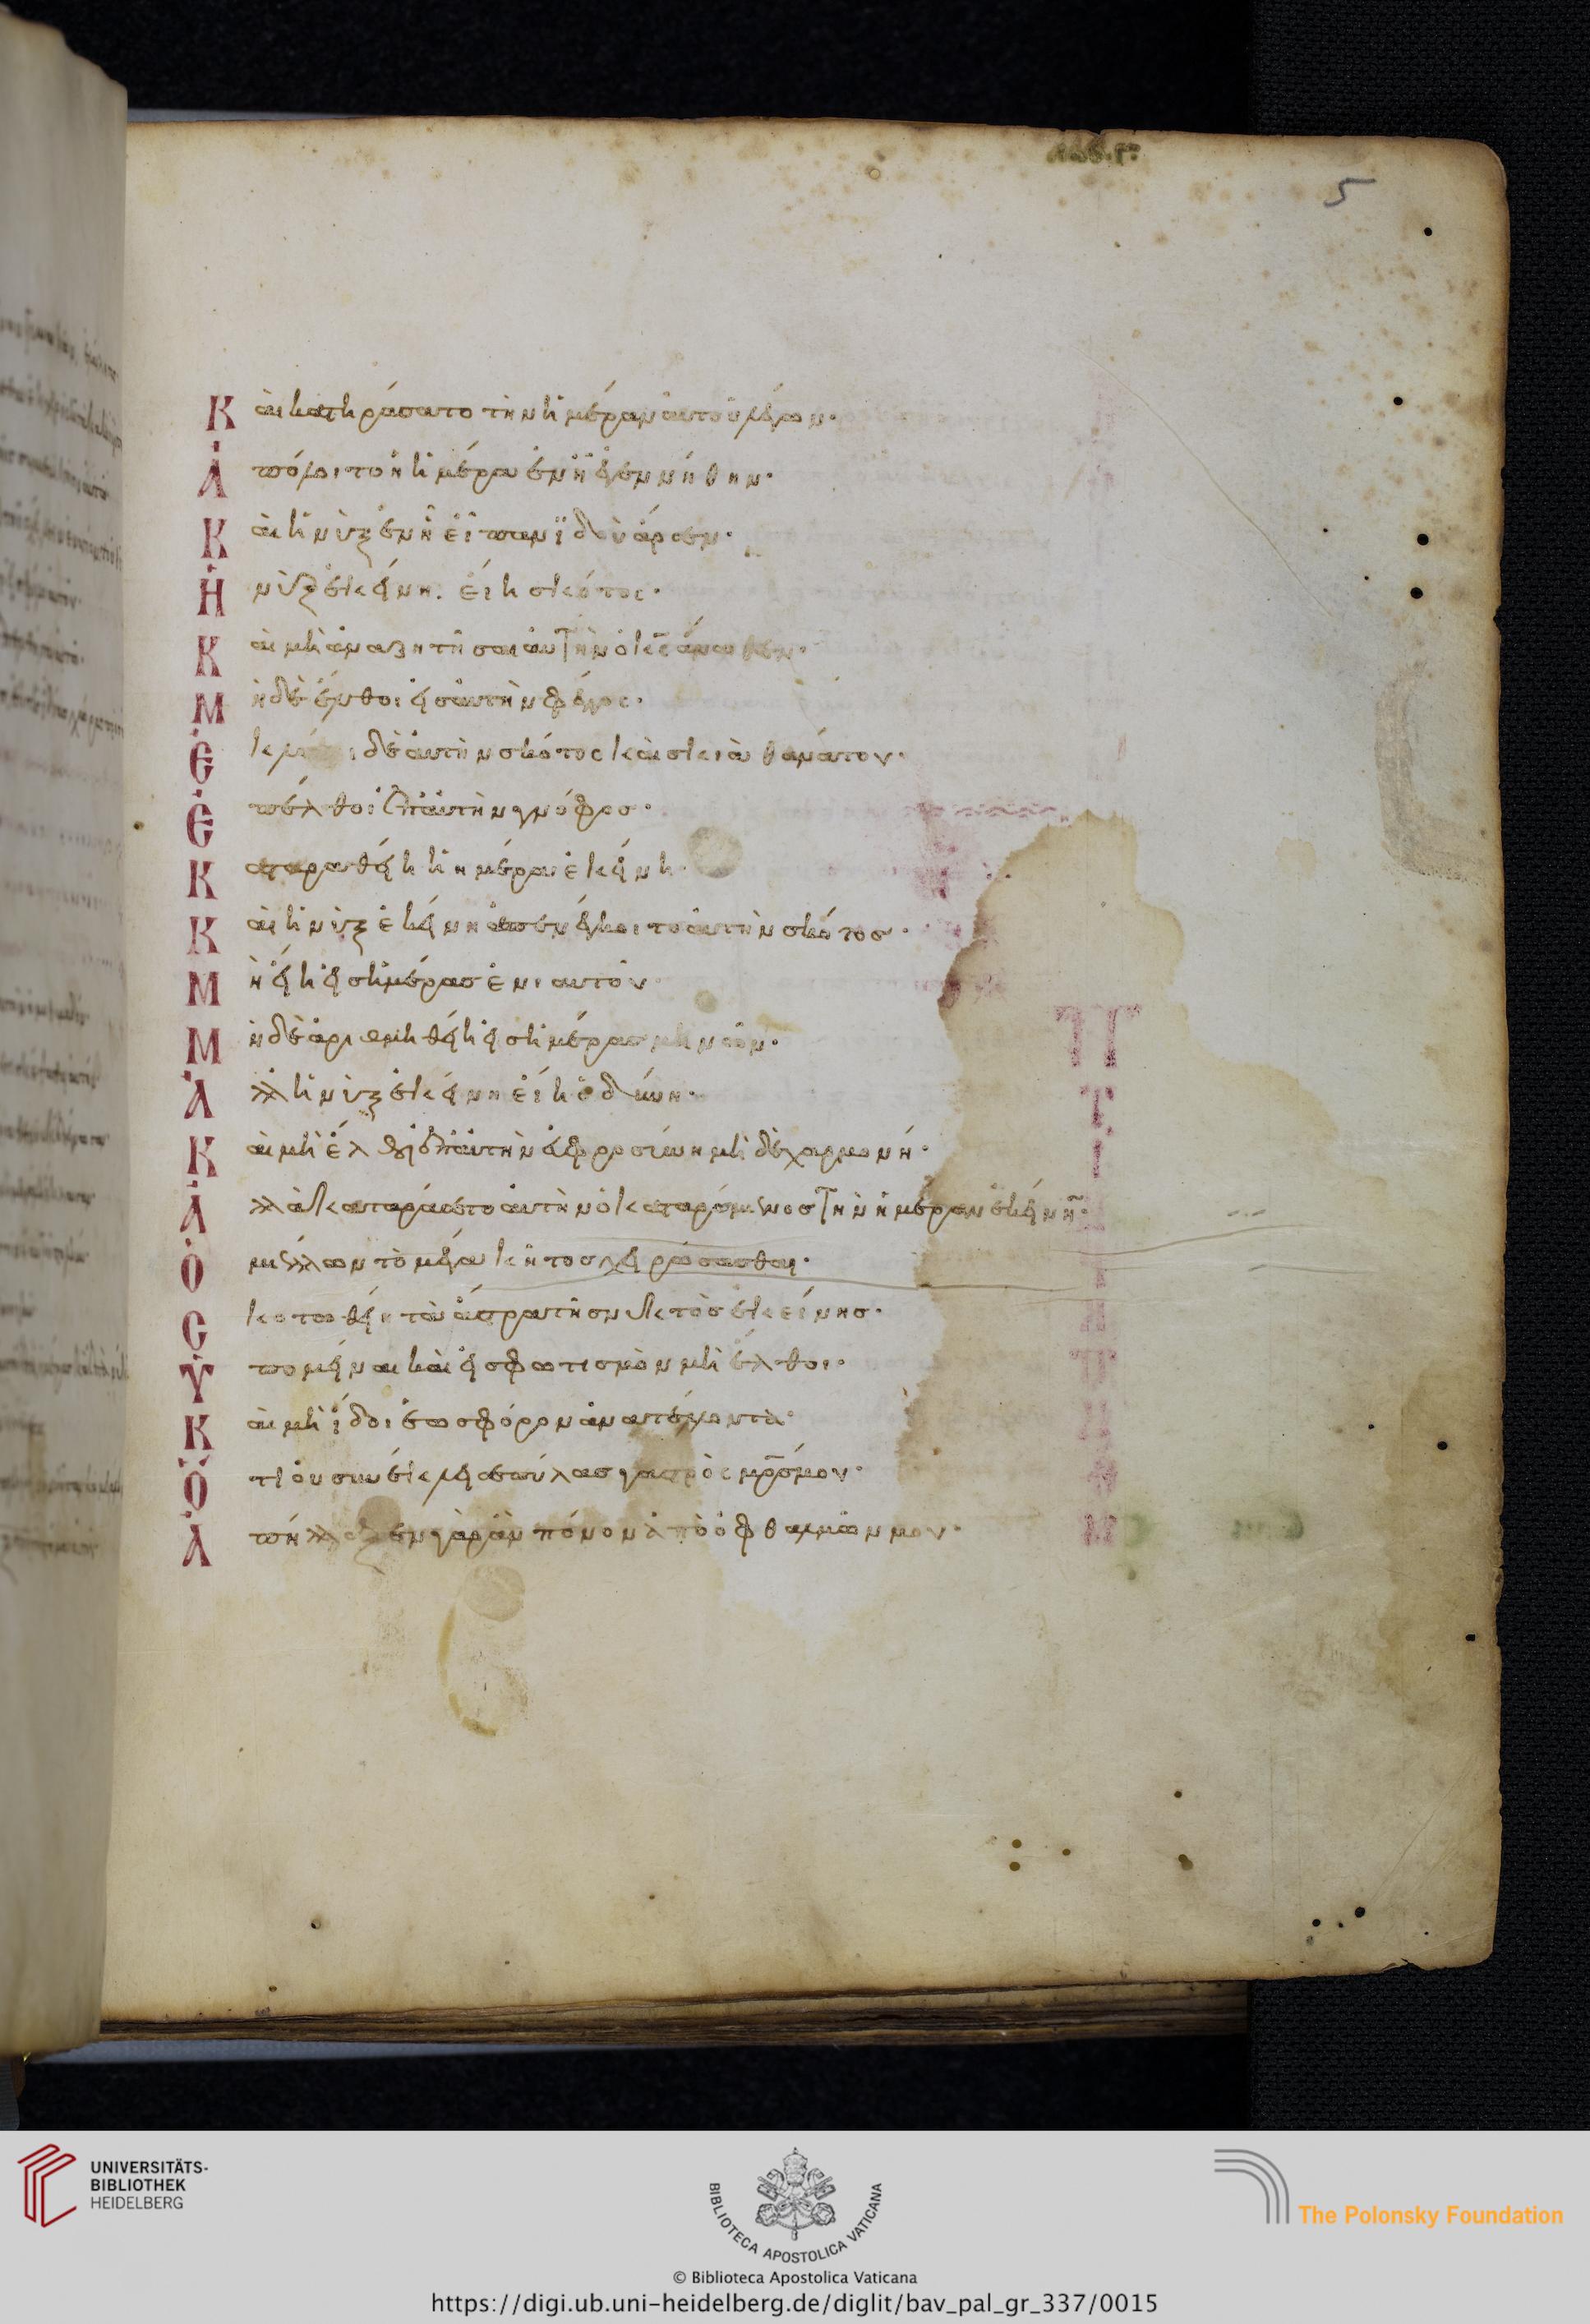 5
Καὶ κατηράσατο τὴν ἡμέραν αὐτοῦ λέγων·
Ἀπόλοιτο ἡ ἡμέρα ἐν ᾗ ἐγεννήθην·
Καὶ ἡ νὺξ ἐν ᾗ εἶπαν ἰδοὺ ἄρσεν·
Ἡ νὺξ ἐκείνη. εἴη σκότος·
Καὶ μὴ ἀναζητῆσαι αὐτὴν ὁ κς ἄνωθεν·
Μὴ δὲ ἔλθοι εἰς αὐτὴν φέγγος·
Ἐκλά οι δὲ αὐτὴν σκότος καὶ σκιὰ θανάτου·
Ἐπέλθοι ἐπ' αὐτὴν γνόφος·
Καταραθείη ἡ ἡμέρα ἐκείνη·
Καὶ ἡ νὺξ ἐκείνη ἀπενέγκοιτο αὐτὴν σκότος·
Μὴ εἴη εἰς ἡμέρας ἐνιαυτοῦ·
Μὴ δὲ ἀριθμηθείη εἰς ἡμέρας μηνῶν·
Ἀλλ' ἡ νὺξ ἐκείνη εἴη ὀδύνη·
Καὶ μὴ ἔλθοι ἐπ' αὐτὴν εὐφροσύνη μὴ δὲ χαρμονή·
Ἀλλὰ καταράσαιτο αὐτὴν ὁ καταρώμενος τὴν ἡμέραν ἐκείνην·
Ὁ μέλλων τὸ μέγα κῆτος χειρώσασθαι·
Σκοτωθείη τὰ ἄστρα τῆς νυκτὸς ἐκείνης·
Ὑπομείναι καὶ εἰς φωτισμὸν μὴ ἔλθοι·
Καὶ μὴ ἴδοι ἑωσφόρον ἀνατέλλοντα·
Ὅτι οὐ συνέκλεισε πύλας γαστρὸς μρς μου·
Ἀπήλλαξεν γὰρ ἂν πόνον ἀπὸ ὀφθαλμῶν μου·
UNIVERSITÄTS-
BIBLIOTHEK
HEIDELBERG
BIBLIOTECA APOSTOLICA VATICANA
The Polonsky Foundation
© Biblioteca Apostolica Vaticana
https://digi.ub.uni-heidelberg.de/diglit/bav_pal_gr_337/0015